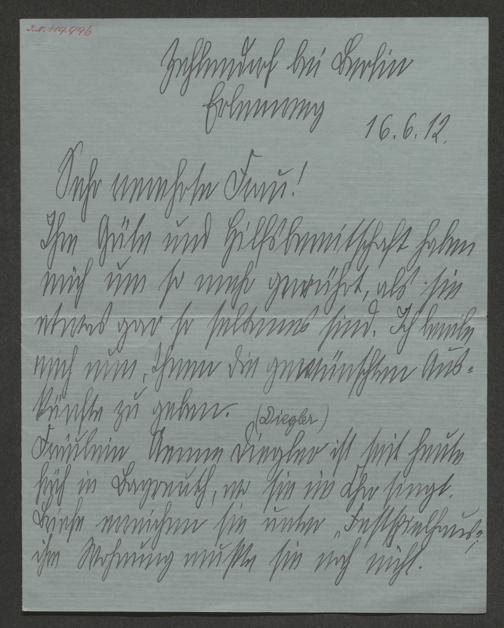 I.N. 119.996
Zehlendorf bei Berlin
Erlenweg
16.6.12.
Sehr verehrte Frau!
Ihre Güte und Hilfsbereitschaft haben
mich um so mehr gerührt, als sie
etwas gar so seltenes sind. Ich beeile
mich nun, Ihnen die gewünschten Aus-
künfte zu geben.
(Diegler)
Fräulein Aenne Diegler ist seit heute
früh in Bayreuth, wo sie im Chor singt.
Briefe erreichen sie unter „Festspielhaus“;
ihre Wohnung wusste sie noch nicht.